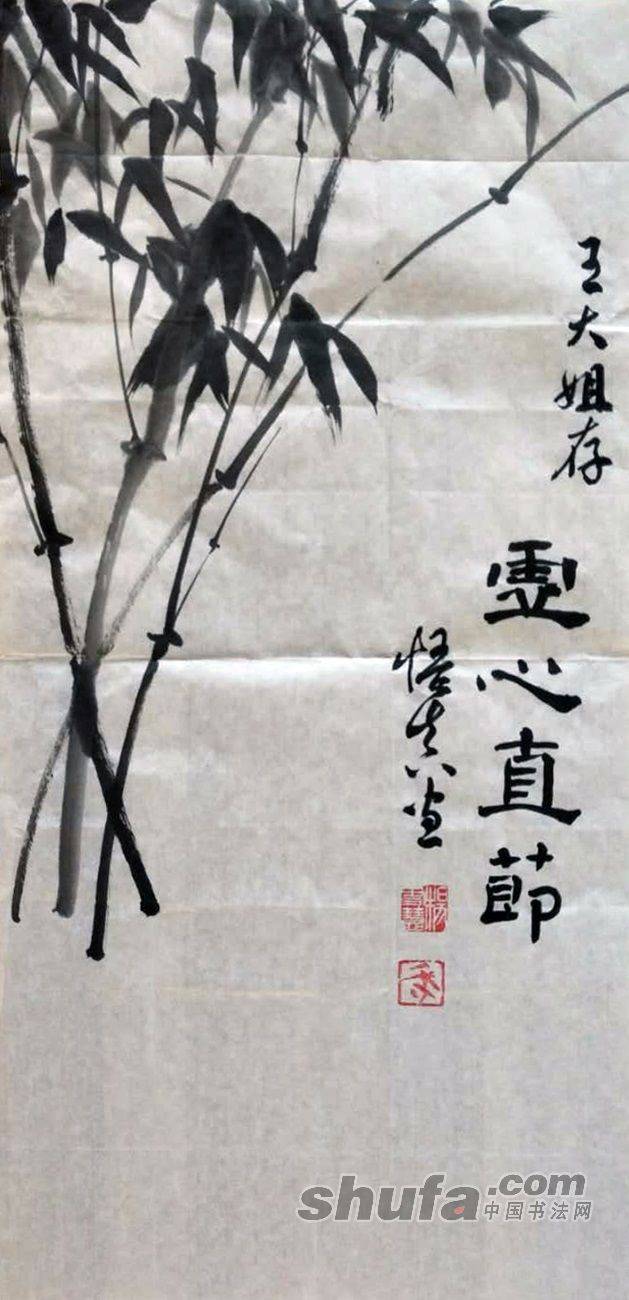 王大姐存
虚心直節
悟真画
shufa.com
中国书法网